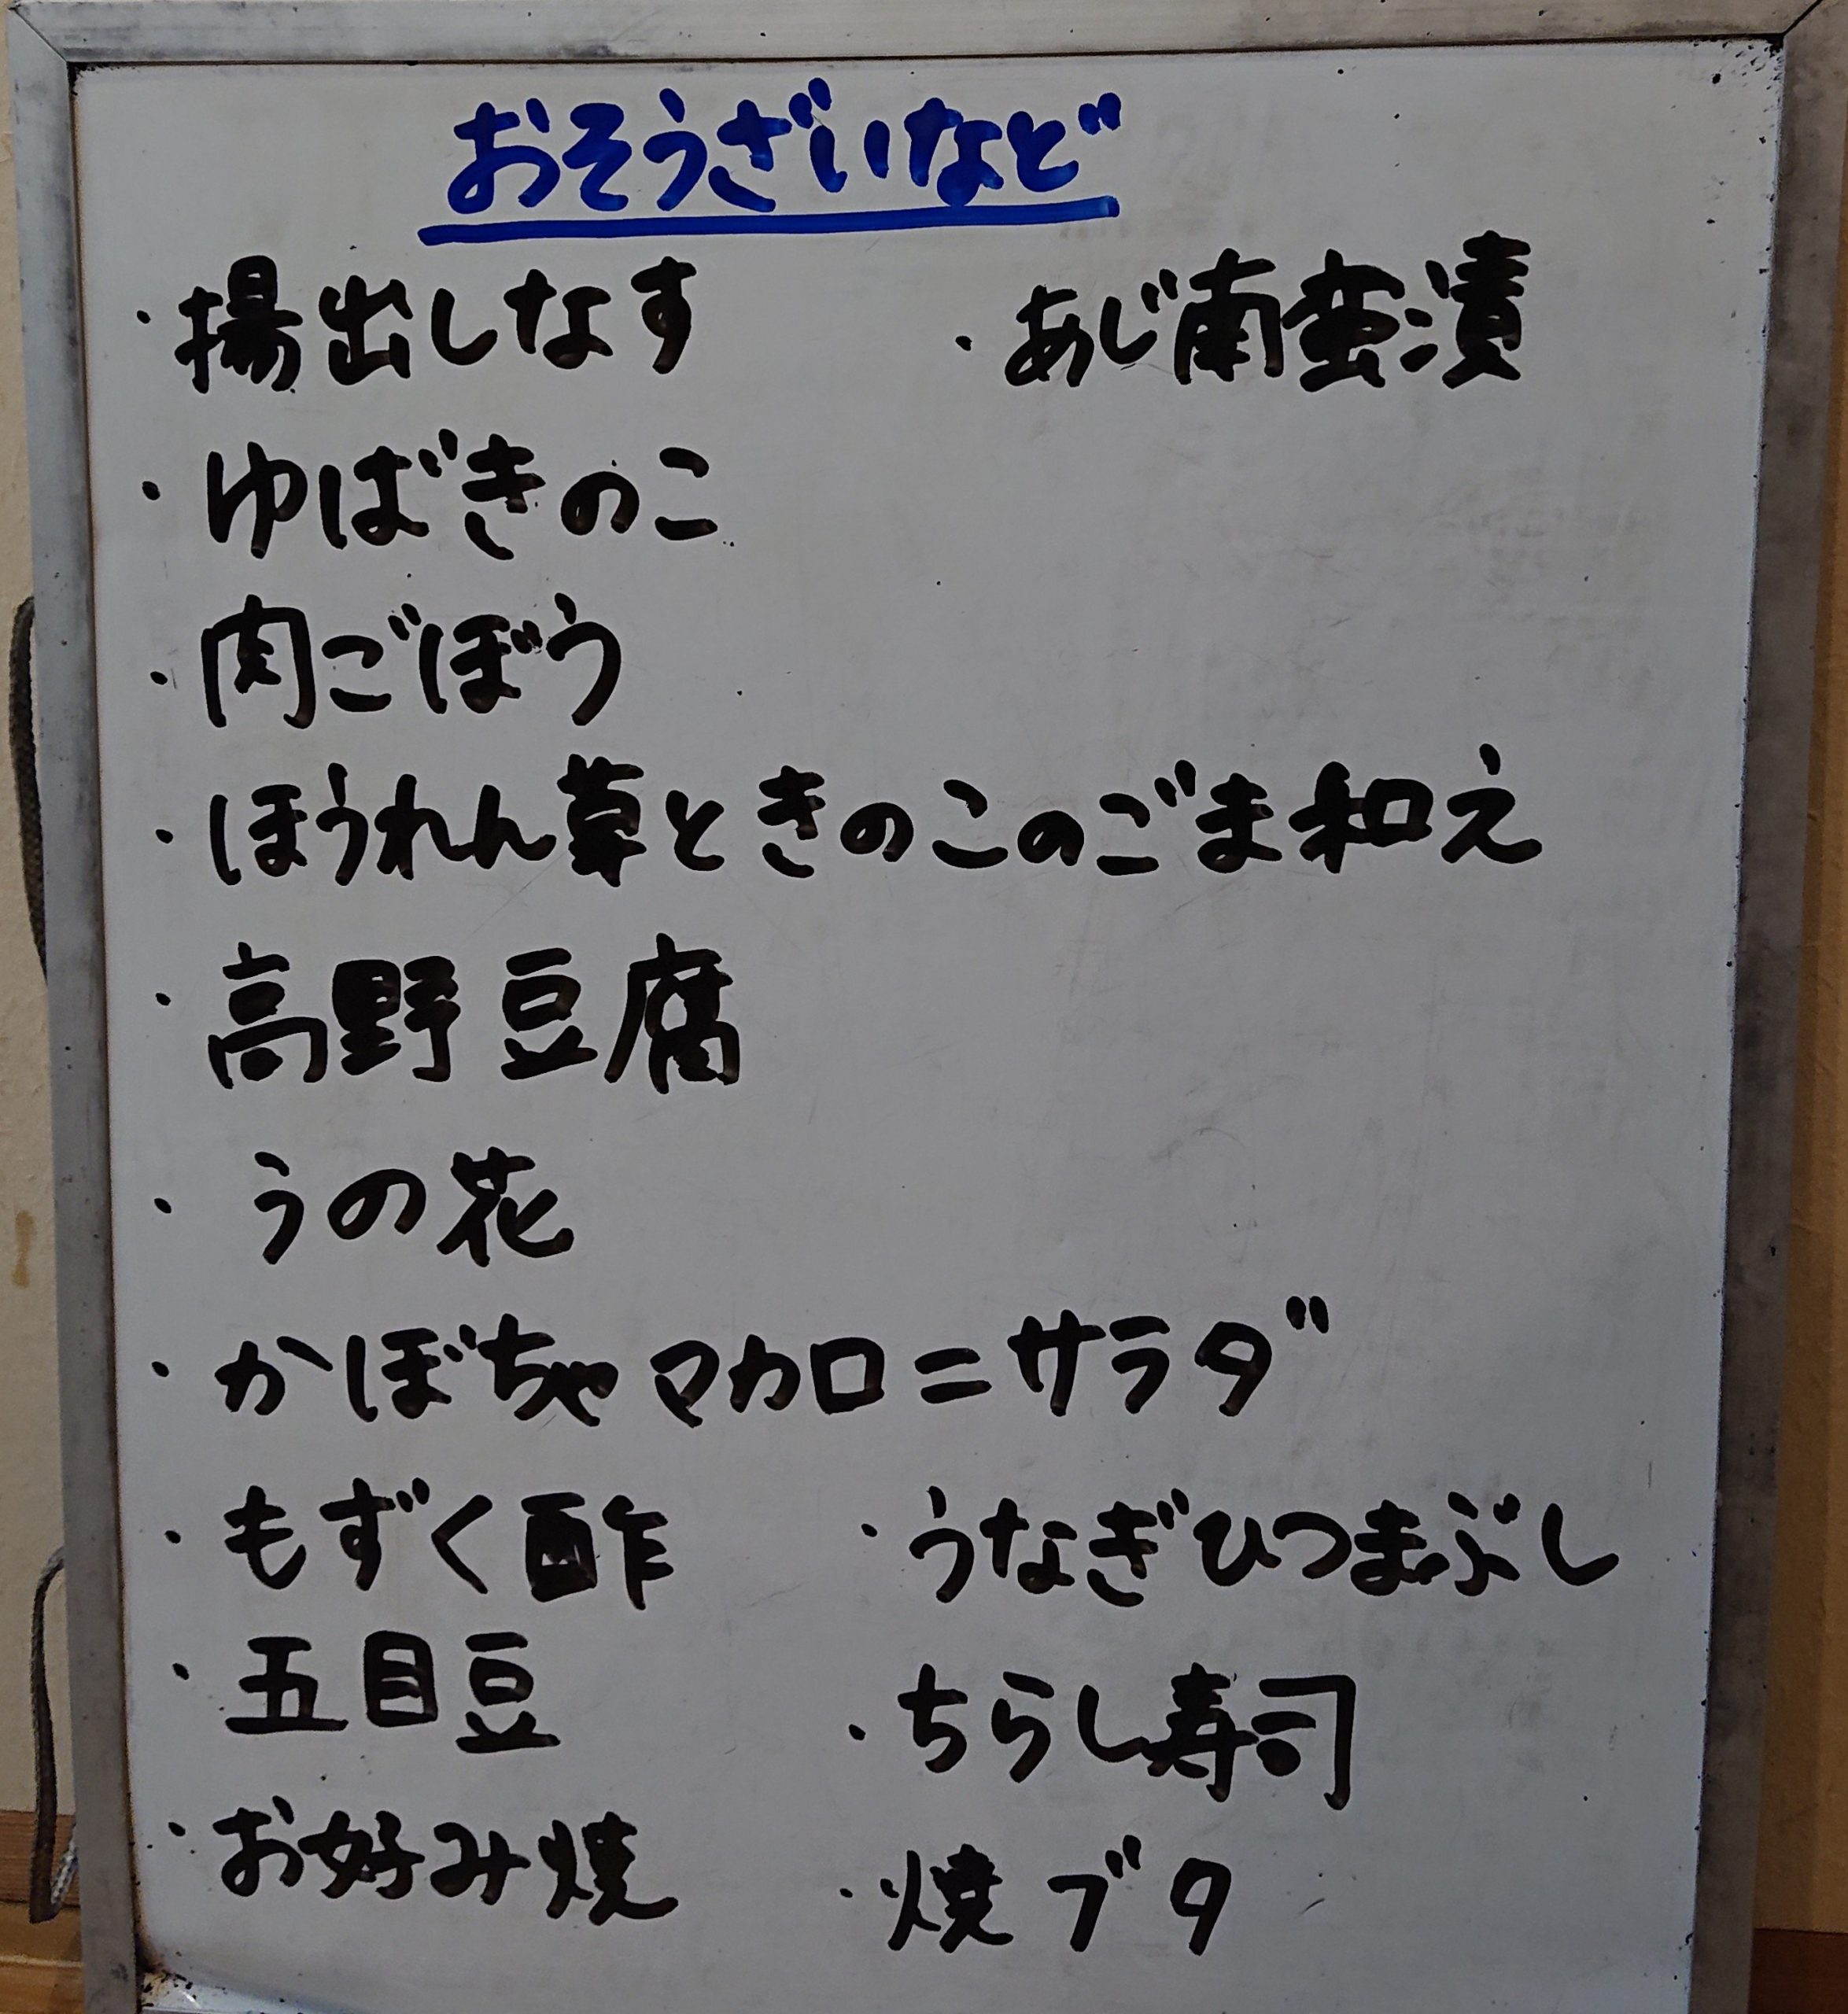 おそうざいなど
・揚出しなす ・あじ南蛮漬
・ゆばきのこ
・肉ごぼう
・ほうれん草ときのこのごま和え
・高野豆腐
・うの花
・かぼちゃマカロニサラダ
・もずく酢 ・うなぎひつまぶし
・五目豆 ・ちらし寿司
・お好み焼 ・焼ブタ